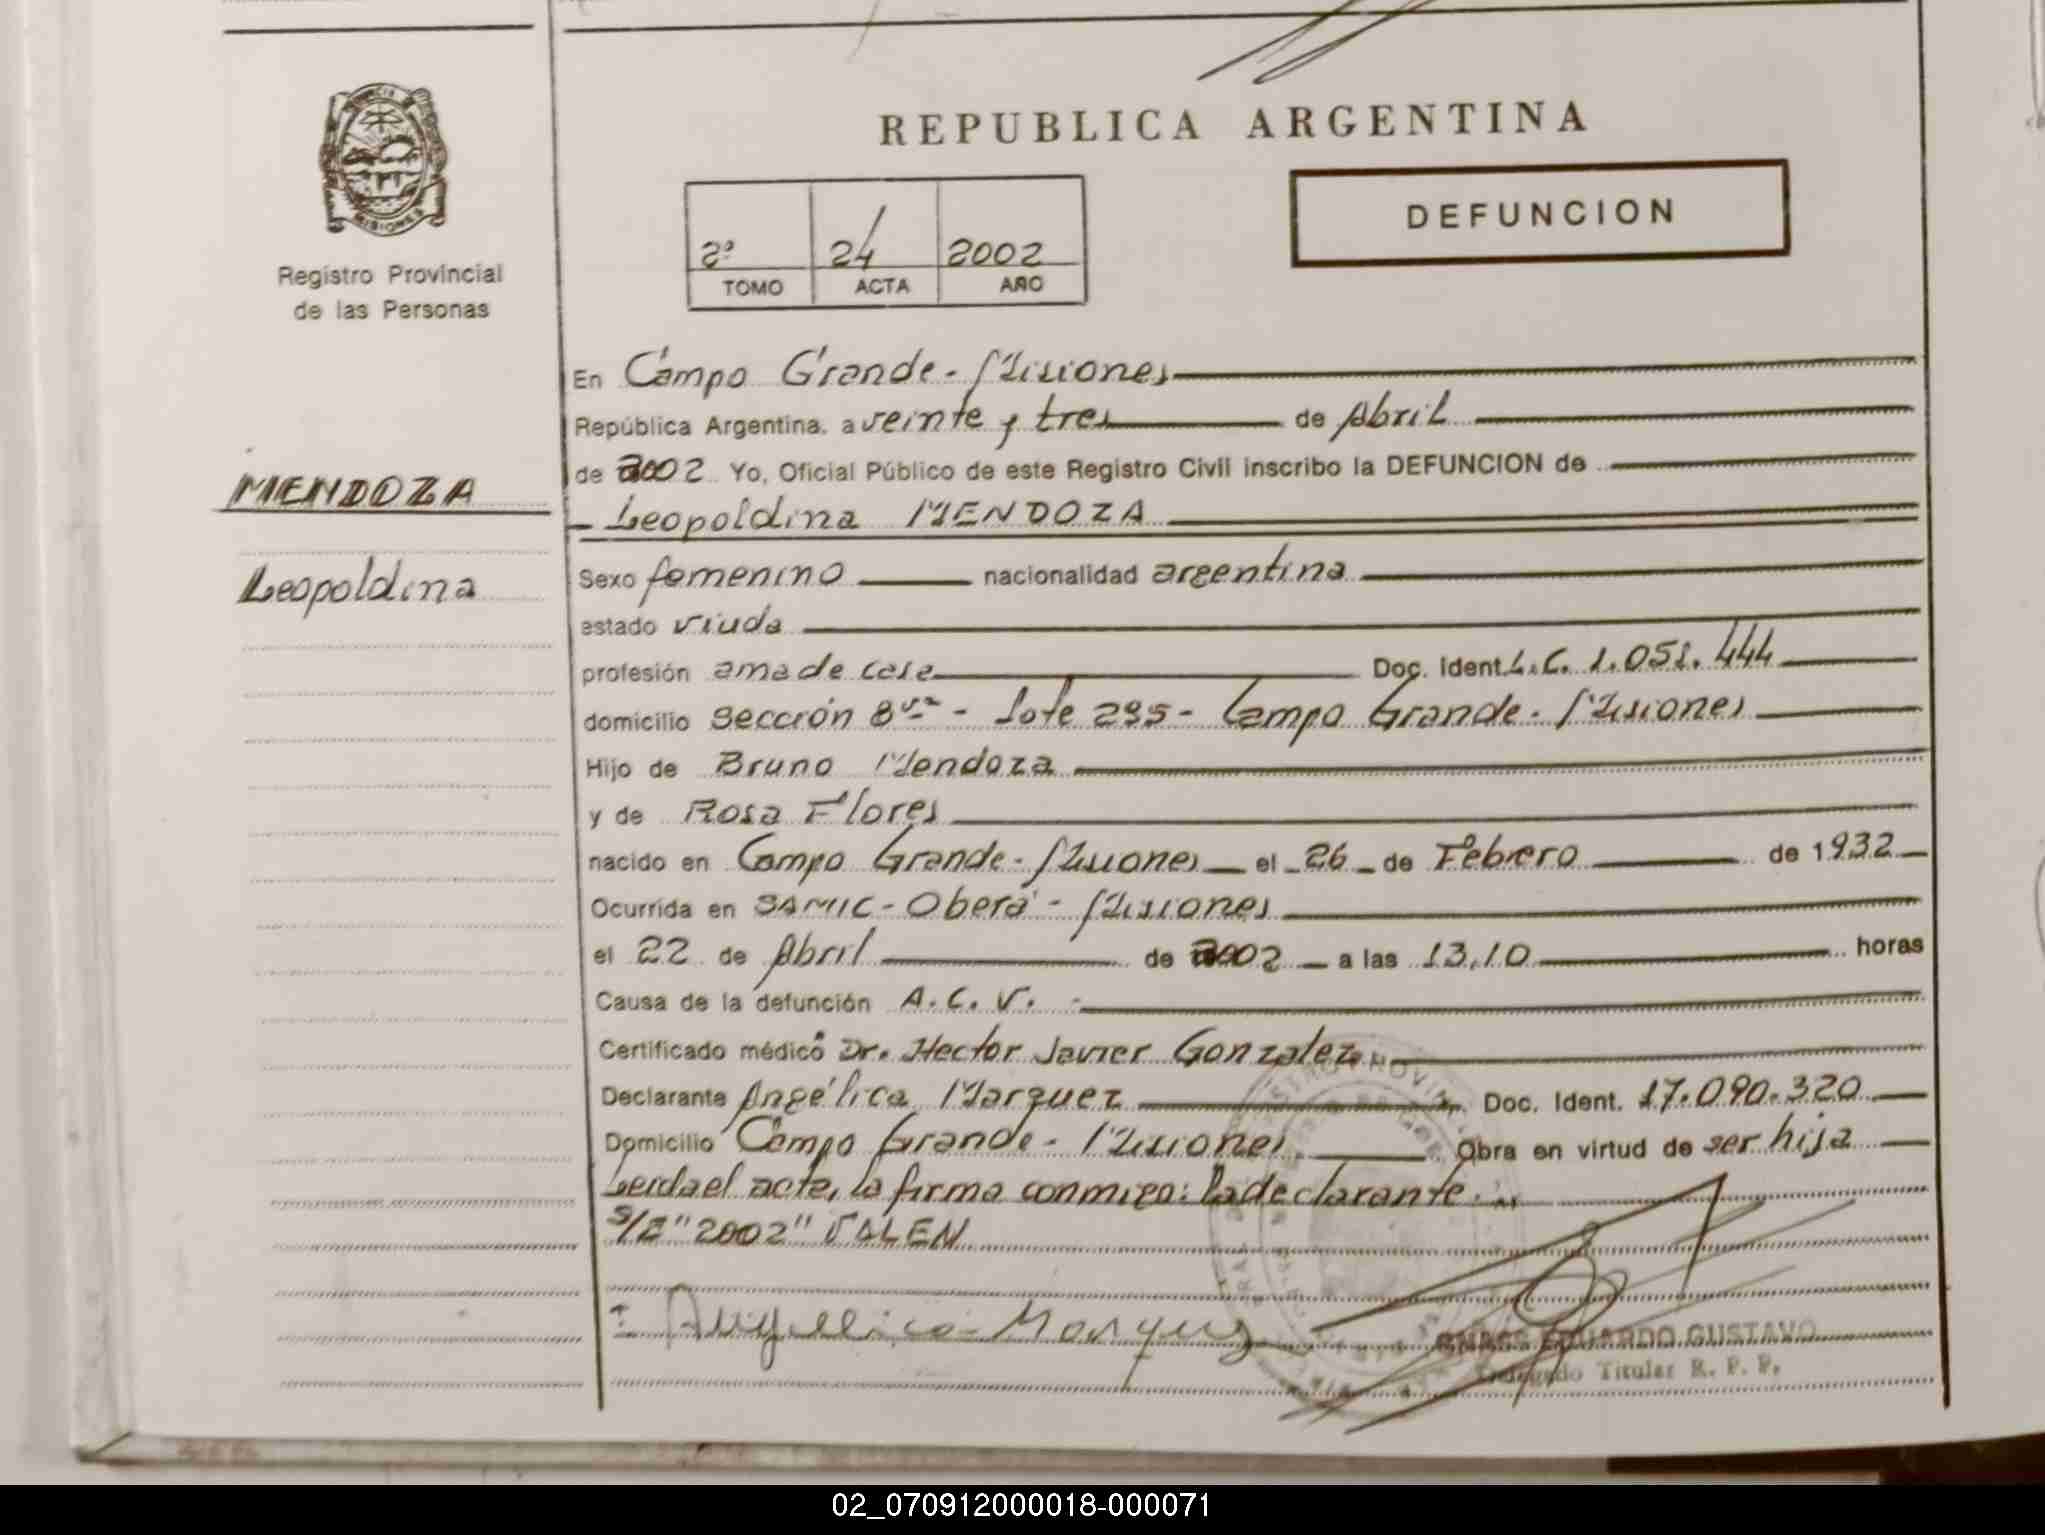 REPUBLICA ARGENTINA
DEFUNCION
MISIONES
Registro Provincial
de las Personas
2º 24 2002
TOMO ACTA AÑO
En Campo Grande - Misiones
República Argentina, a veinte y tres de Abril
de 2002 Yo, Oficial Público de este Registro Civil inscribo la DEFUNCION de
MENDOZA
Leopoldina MENDOZA
Leopoldina
Sexo femenino nacionalidad argentina
estado viuda
profesión ama de casa Doc. Ident. L.C. 1.051.444
domicilio Sección 8va - Lote 295 - Campo Grande - Misiones
Hijo de Bruno Mendoza
y de Rosa Flores
nacido en Campo Grande - Misiones el 26 de Febrero de 1932
Ocurrida en SAMIC - Oberá - Misiones
el 22 de Abril de 2002 a las 13,10 horas
Causa de la defunción A.C.V. -
Certificado médico Dr. Hector Javier Gonzalez
Declarante Angélica Marquez Doc. Ident. 17.090.320
Domicilio Campo Grande - Misiones Obra en virtud de ser hija
Leida el acta, la firma conmigo: la declarante.
S/E "2002" VALEN
Angellica Marquez
EDUARDO GUSTAVO
Delegado Titular R. P. P.
02_070912000018-000071